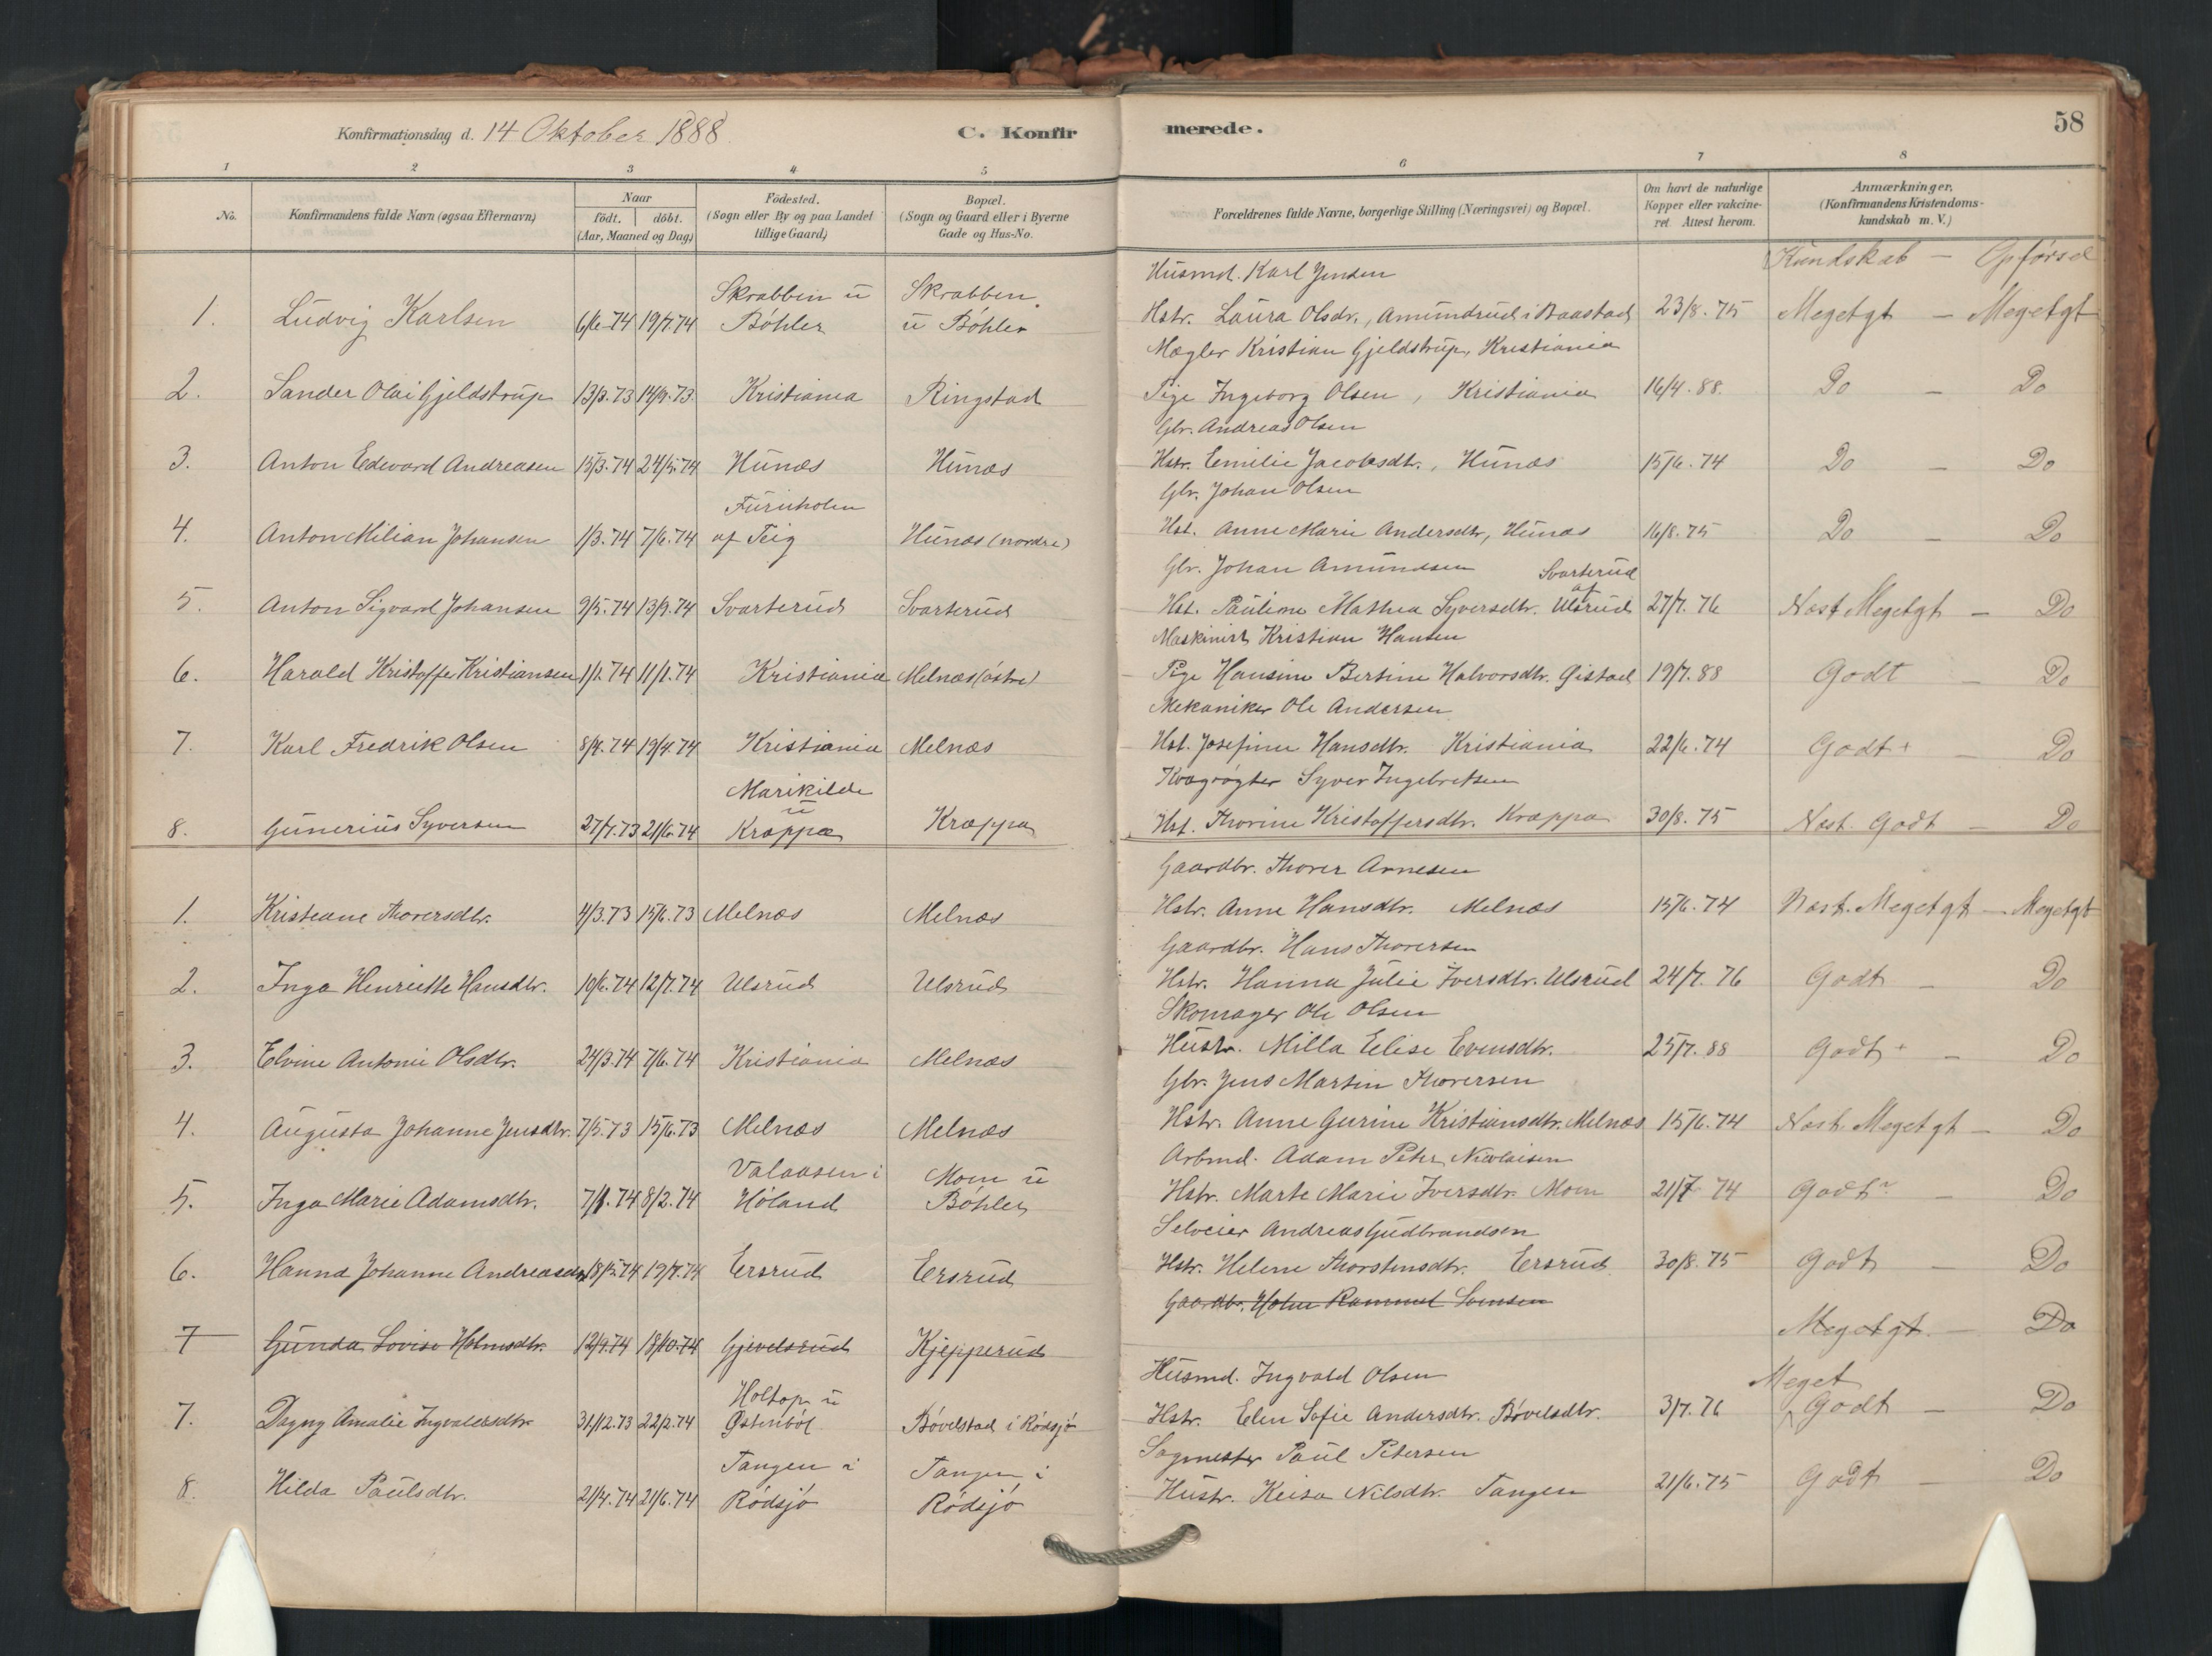 Konfirmationsdag d. 14 Oktober 1888. C. Konfir merede. 58
1 2 3 4 5 6 7 8
No. Konfirmandens fulde Navn (ogsaa Efternavn) Naar født. døbt. (Aar, Maaned og Dag) Födested. (Sogn eller By og paa Landet tillige Gaard) Bopæl. (Sogn og Gaard eller i Byerne Gade og Hus-No. Forældrenes fulde Navne, borgerlige Stilling (Næringsvei) og Bopæl. Om havt de naturlige Kopper eller vakcineret. Attest herom. Anmærkninger. (Konfirmandens Kristendomskundskab m. V.)
Kundskab - Opførsel
Skrabben u Skrabben Husmd. Karl Jensen
1. Ludvig Karlsen 6/6.74 19/7.74 Böhler u Böhler Hstr. Laura Olsdr., Amundrud i Baastad 23/8.75 Megetgt - Megetgt
Mægler Kristian Gjeldstrup, Kristiania
2. Sander Olai Gjeldstrup 13/3.73 14/9.73 Kristiania Ringstad Pige Ingeborg Olsen, Kristiania 16/4.88. Do - Do
Gbr. Andreas Olsen
3. Anton Edvard Andreasen 15/3.74 24/5.74 Hunæs Hunæs Hstr. Emilie Jacobsdtr., Hunæs 15/6.74 Do - Do
Furuholen Gbr. Johan Olsen
4. Anton Milian Johansen 1/3.74 7/6.74 af Teig Hunæs (nordre) Hst. Anne Marie Andersdtr, Hunæs 16/8.75 Do - Do
Gbr. Johan Amundsen Svarterud
5. Anton Sigvard Johansen 9/5.74 13/9.74 Svarterud Svarterud Hst. Pauline Mathea Syversdtr. af Ulsrud 27/7.76 Næst Megetgt - Do
Maskinist Kristian Hansen
6. Harald Kristoffer Kristiansen 1/1.74 11/1.74 Kristiania Melnæs (östre) Pige Hansine Bertine Halvorsdtr. Gistad 19/7.88 Godt - Do
Mekaniker Ole Andersen
7. Karl Fredrik Olsen 8/4.74 19/4.74 Kristiania Melnæs Hst. Josefine Hansdtr. Kristiania 22/6.74 Godt+ - Do
Marikilde Kvægrögter Syver Ingebretsen
8. Gunerius Syversen 27/7.73 21/6.74 u Kræppa Kræppa Hst. Thorine Kristoffersdtr. Kræppa 30/8.75 Næst. Godt - Do
Gaardbr. Thorer Arnesen
1. Kristiane Thorersdtr. 4/3.73 15/6.73 Melnæs Melnæs Hstr. Anne Hansdtr. Melnæs 15/6.74 Næst. Megetgt - Megetgt
Gaardbr. Hans Thorersen
2. Inga Henriette Hansdtr. 10/6.74 12/7.74 Ulsrud Ulsrud Hstr. Hanna Julie Iversdtr. Ulsrud 24/7.76 Godt - Do
Skomager Ole Olsen
3. Elvine Antonie Olsdtr. 24/3.74 7/6.74 Kristiania Melnæs Hustr. Milla Elise Evensdtr. 25/7.88 Godt+ - Do
Gbr. Jens Martin Thorersen
4. Augusta Johanne Jensdtr. 7/5.73 15/6.73 Melnæs Melnæs Hstr. Anne Gurine Kristiansdtr. Melnæs 15/6.74 Næst. Megetgt - Do
Valaasen i Moen u Arbmd. Adam Peter Nicolaisen
5. Inga Marie Adamsdtr. 7/1.74 8/2.74 Höland Böhler Hstr. Marte Marie Iversdtr. Moen 21/7 74 Godt - Do
Selveier Andreas Gudbrandsen
6. Hanna Johanne Andreasdtr 18/5.74 19/7.74 Ersrud Ersrud Hstr. Helene Thorstensdtr. Ersrud 30/8.75 Godt - Do
Gaardbr. Holm
7 Gunda Lovise Holmsdtr. 12/9.74 18/10.74 Gjevelsrud Kjepperud Megetgt. - Do
Holtop u Husmd. Ingvald Olsen Meget
7. Dagny Amalie Ingvaldsdtr. 31/12.73 22/2.74 Østenböl Bövelstad i Rödsjö Hstr. Elen Sofie Andersdtr. Bövelsdtr. 3/7.76 Godt - Do
Tangen i Tangen i Sagmester Paul Petersen
8. Hilda Paulsdtr. 21/4.74 21/6.74 Rödsjö Rödsjö Hustr. Keisa Nilsdtr. Tangen 21/6.75 Godt - Do